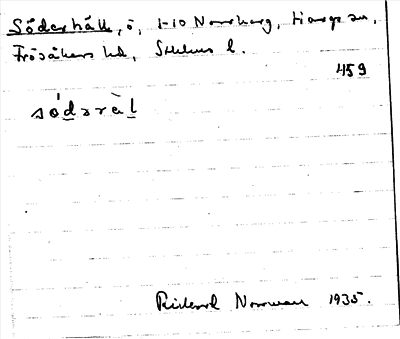 Söderhäll, ö, 1-10 Norrskarg, Hargs sn,
Frösåkers hd, Sthlms l.
459
só̀dəràl
Rickard Norrman 1935.